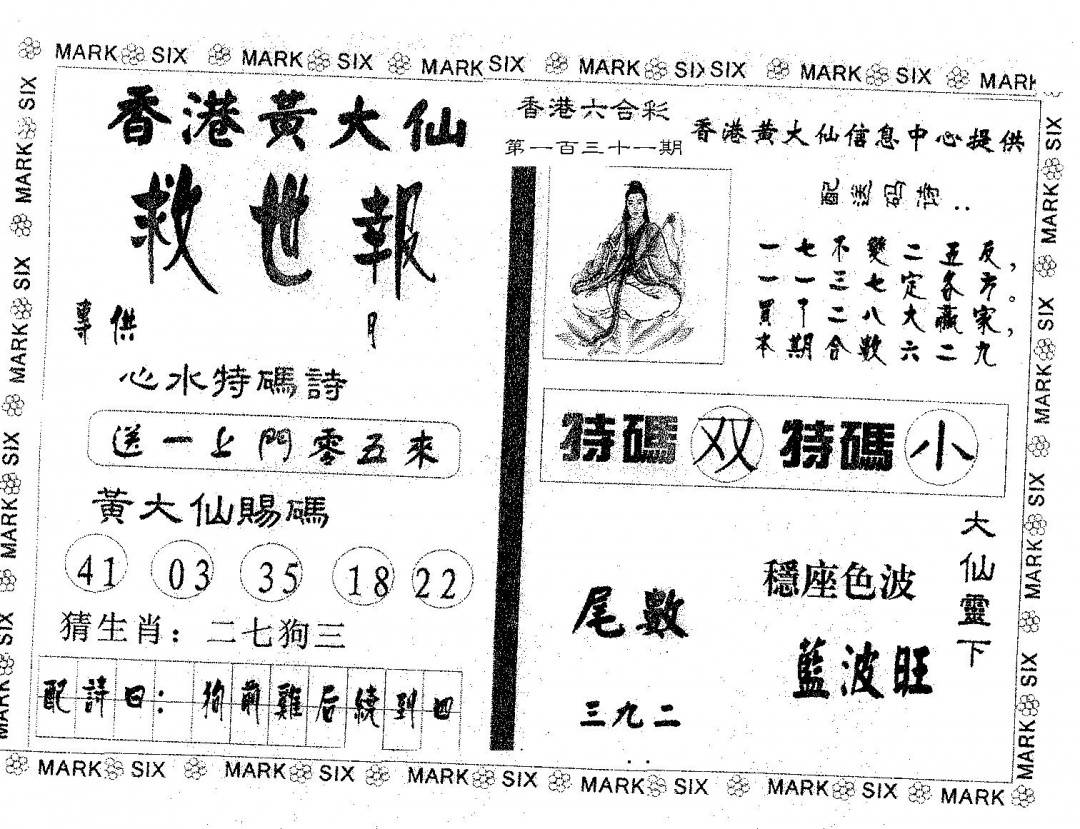 MARK SIX MARK SIX MARK SIX MARK SIX SIX MARK SIX MARK
香港黃大仙
救世報
專供 月
心水特碼詩
送一上門零五來
黃大仙賜碼
41 03 35 18 22
猜生肖：二七狗三
配詩曰：狗前雞后繞到四
香港六合彩
第一百三十一期
香港黄大仙信息中心提供
配送码诗：
一七不變二五反，
一一三七定多方。
買下二八大贏家，
本期合數六二九
特碼 双 特碼 小
尾數
三九二
穩座色波
藍波旺
大仙靈下
MARK SIX MARK SIX MARK SIX MARK SIX MARK SIX MARK
MARK SIX MARK SIX MARK SIX MARK SIX
MARK SIX MARK SIX MARK SIX MARK SIX